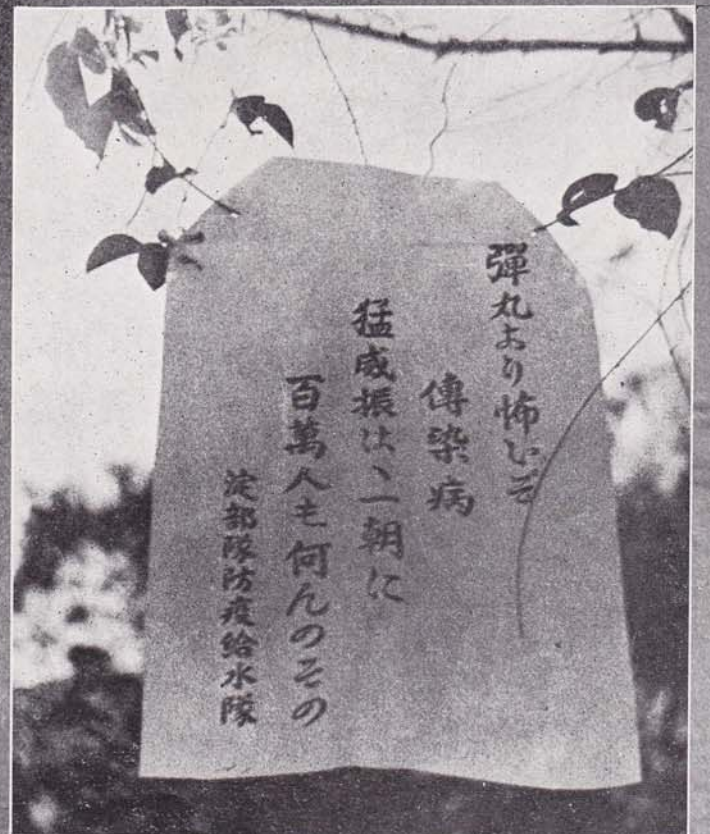 彈丸より怖いぞ
傳染病
猛威振は一朝に
百萬人も何んのその
淀部隊防疫給水隊